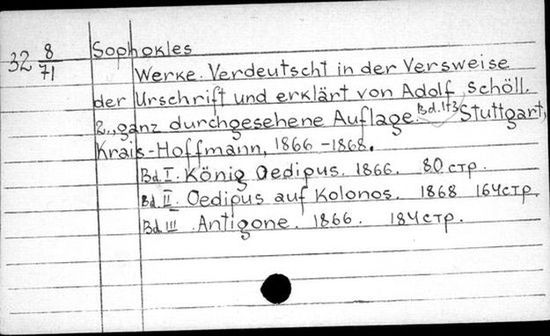 32 8/71
Sophokles
Werke. Verdeutscht in der Versweise
der Urschrift und erklärt von Adolf Schöll.
2., ganz durchgesehene Auflage. Bd. 1+3 Stuttgart,
Krais-Hoffmann, 1866-1868.
Bd I. König Oedipus. 1866. 80 стр.
Bd. II. Oedipus auf Kolonos. 1868 164 стр.
Bd III. Antigone. 1866. 184 стр.